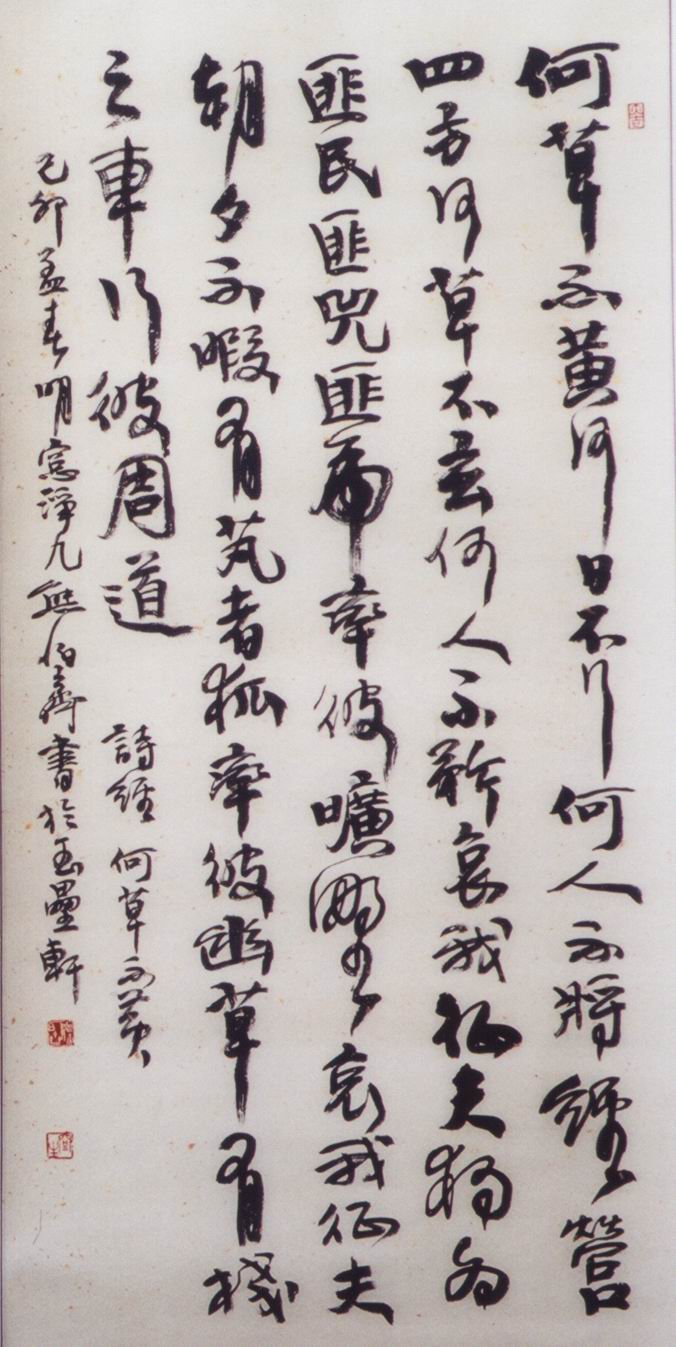 何草不黃何日不行何人不將經營
四方何草不玄何人不矜哀我征夫獨為
匪民匪兕匪虎率彼曠野哀我征夫
朝夕不暇有芃者狐率彼幽草有棧
之車行彼周道
詩經 何草不黃
己卯孟春明窓淨几熊伯齊書於玉壘軒